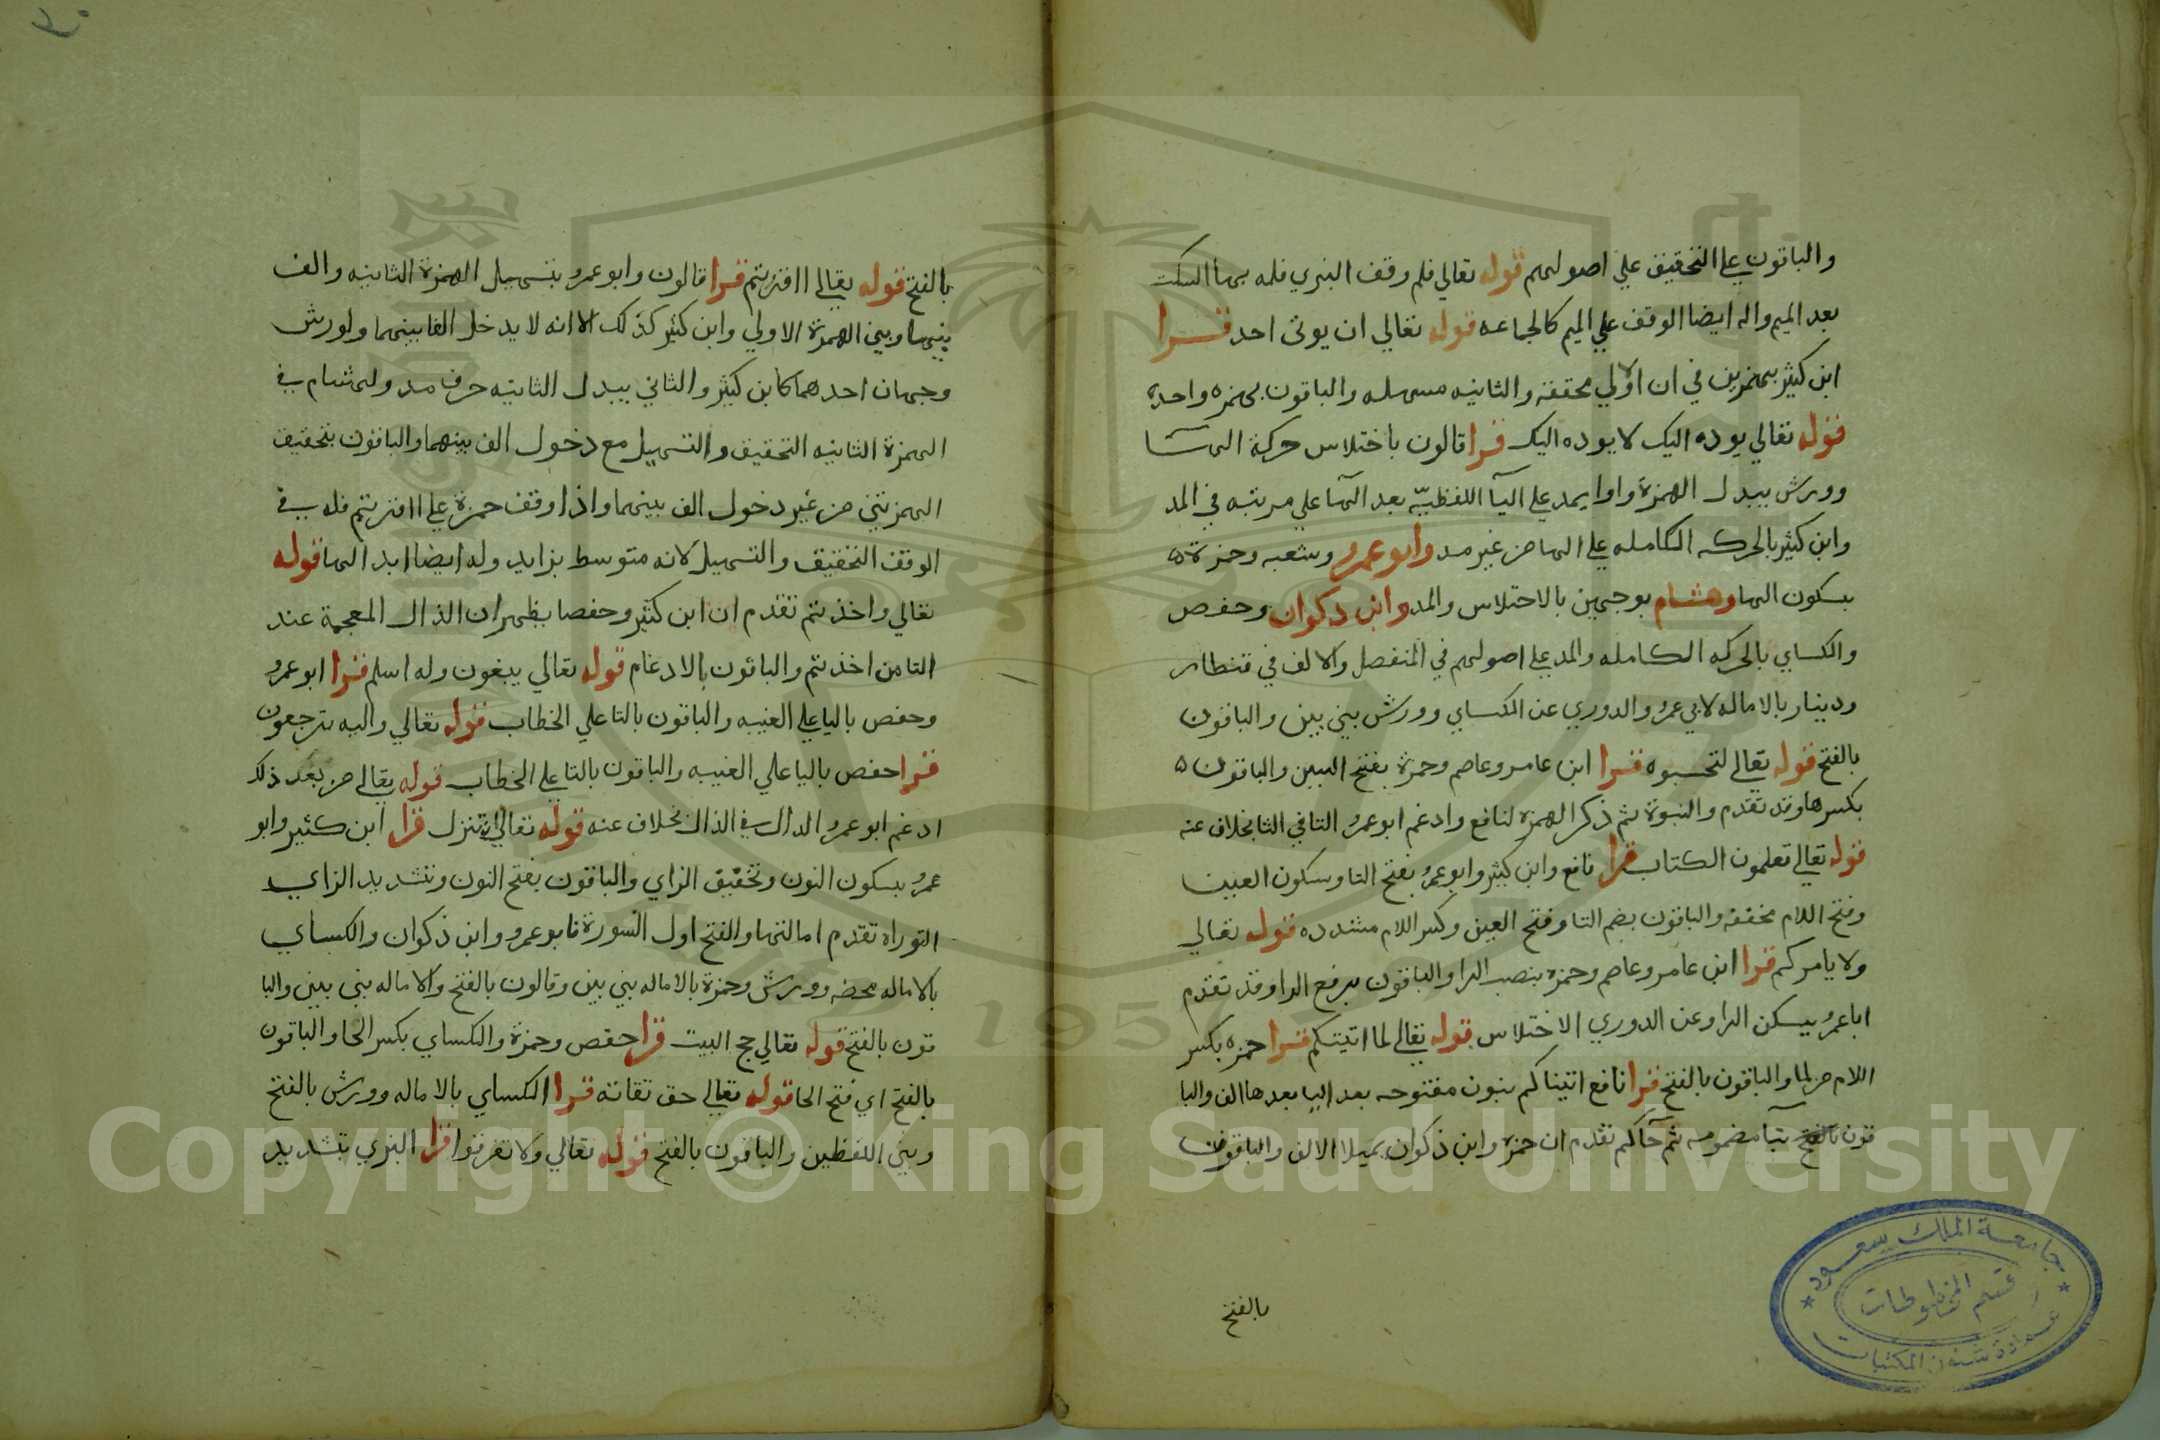 والباقون علي التحقيق علي اصولهم قوله تعالي فلم وقف البزي فلمه بها السكت
بعد الميم واله ايضا الوقف علي الميم كالجماعه قوله تعالي ان يوتي احد قرا
ابن كثير بهمزتين في ان الاولي محققه والثانيه مسهله والباقون بهمزه واحدة
قوله تعالي يوده اليك لا يوده اليك قرا قالون باختلاس حركة الهآ
وورش يبدل الهمزة واوا يمد علي اليآ اللفظيّه بعد الهآ علي مرتبه في المد
وابن كثير بالحركه الكامله علي الها من غير مد وابو عمرو وشعبه وحمزة
بسكون الها وهشام بوجهين بالاختلاس والمد وابن دكوان وحفص
والكساي بالحركه الكامله والمد علي اصولهم في المنفصل والالف في قنطار
ودينار بالاماله لابي عمرو والدوري عن الكساي وورش بين بين والباقون
بالفتح قوله تعالي لتحسبوه قرا ابن عامر وعاصم وحمزة بفتح السين والباقون
بكسرها وقد تقدم والنبوة ثم ذكر الهمزه لنافع وادغم ابو عمرو التا في الثا بخلاف عنه
قوله تعالي تعلمون الكتاب قرا نافع وابن كثير وابو عمرو بفتح التا وسكون العين
وفتح اللام مخففه والباقون بضم التا وفتح العين وكسر اللام مشدده قوله تعالي
ولا يامركم قرا ابن عامر وعاصم وحمزه بنصب الرا والباقون برفع الرا وقد تقدم
ابا عمرو يسكن الرا وعن الدوري الاختلاس قوله تعالي لما اتيتكم قرا حمزه بكسر
اللام من لما والباقون بالفتح قرا نافع اتيناكم بنون مفتوحه بعد اليا بعدها الف والبا
قون بالفتح بتآ مضمومه ثم جآكم تقدم ان حمزه وابن ذكوان يميلا الالف والباقون
بالفتح
بالفتح قوله تعالي ااقررتم قرا قالون وابو عمرو بتسهيل الهمزة الثانيه والف
بينها وبين الهمزة الاولي وابن كثير كذلك الا انه لا يدخل الفا بينهما ولورش
وجهان احدهما كابن كثير والثاني يبدل الثانيه حرف مد ولهشام في
الهمزة الثانيه التحقيق والتسهيل مع دخول الف بينهما والباقون بتحقيق
الهمزتين من غير دخول الف بينهما واذا وقف حمزة علي ااقررتم فله في
الوقف التحقيق والتسهيل لانه متوسط بزايد وله ايضا ابدالها قوله
تعالي واخذتم تقدم ان ابن كثير وحفصا يظهران الذال المعجمة عند
التا من اخذتم والباقون بالادغام قوله تعالي يبغون وله اسلم قرا ابو عمرو
وحفص باليا علي الغيبه والباقون بالتا علي الخطاب قوله تعالي واليه ترجعون
قرا حفص باليا علي الغيبه والباقون بالتا علي الخطاب قوله تعالي من بعد ذلك
ادغم ابو عمرو الدال في الذال بخلاف عنه قوله تعالي ان تنزل قرا ابن كثير وابو
عمرو بسكون النون وتخفيق الزاي والباقون بفتح النون وتشديد الزاي
التوراه تقدم امالتها والفتح اول السورة فابو عمرو وابن ذكوان والكساي
بالاماله محضه وورش وحمزة بالاماله بين بين وقالون بالفتح والاماله بين بين والبا
قون بالفتح قوله تعالي حج البيت قرا حفص وحمزة والكساي بكسر الحا والباقون
بالفتح اي فتح الحا قوله تعالي حق تقاته قرا الكساي بالاماله وورش بالفتح
وبين اللفظين والباقون بالفتح قوله تعالي ولا تفرقوا قرا البزي بتشديد
جامعة الملك سعود
قسم المخطوطات
عمادة شئون المكتبات
1957
Copyright © King Saud University